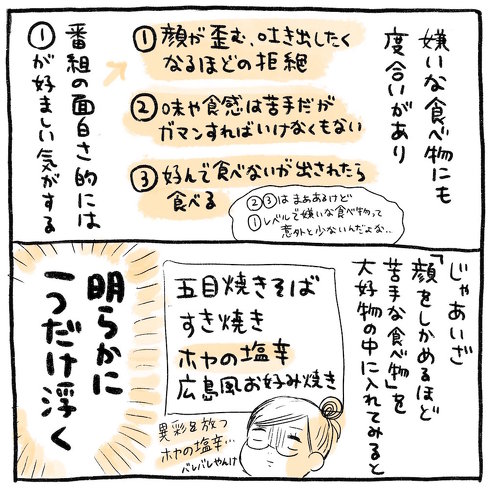 嫌いな食べ物にも
度合いがあり
①顔が歪む、吐き出したく
なるほどの拒絶
②味や食感は苦手だが
ガマンすればいけなくもない
③好んで食べないが出されたら
食べる
②③は まああるけど
①レベルで嫌いな食べ物って
意外と少ないんだよな..
番組の面白さ的には
①が好ましい気がする
じゃあいざ
「顔をしかめるほど
苦手な食べ物」を
大好物の中に入れてみると
五目焼きそば
すき焼き
ホヤの塩辛
広島風お好み焼き
異彩を放つ
ホヤの塩辛…
バレバレやんけ
明らかに
一つだけ浮く